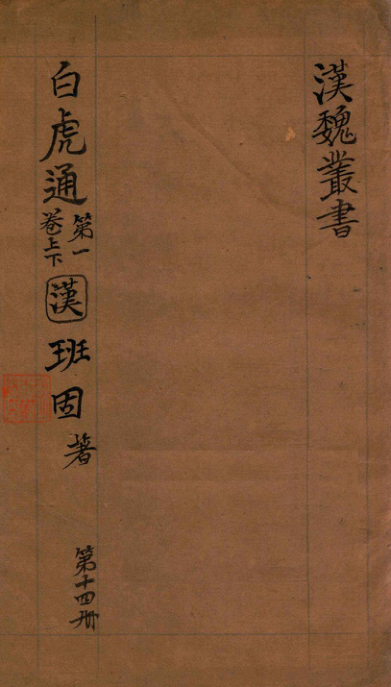 漢魏叢書
白虎通
第一
卷上下
漢
班固著
第十四册